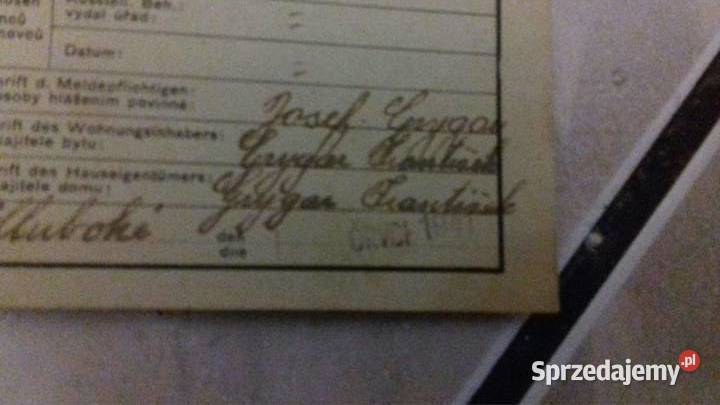 vydal úřad:
Datum:
rift d. Meldepflichtigen:
osoby hlášením povinné:
Josef Grygar
rift des Wohnungsinhabers:
ajitele bytu:
Grygar František
rift des Hauseigentümers:
ajitele domu:
Grygar František
den
dne
Sprzedajemy.pl